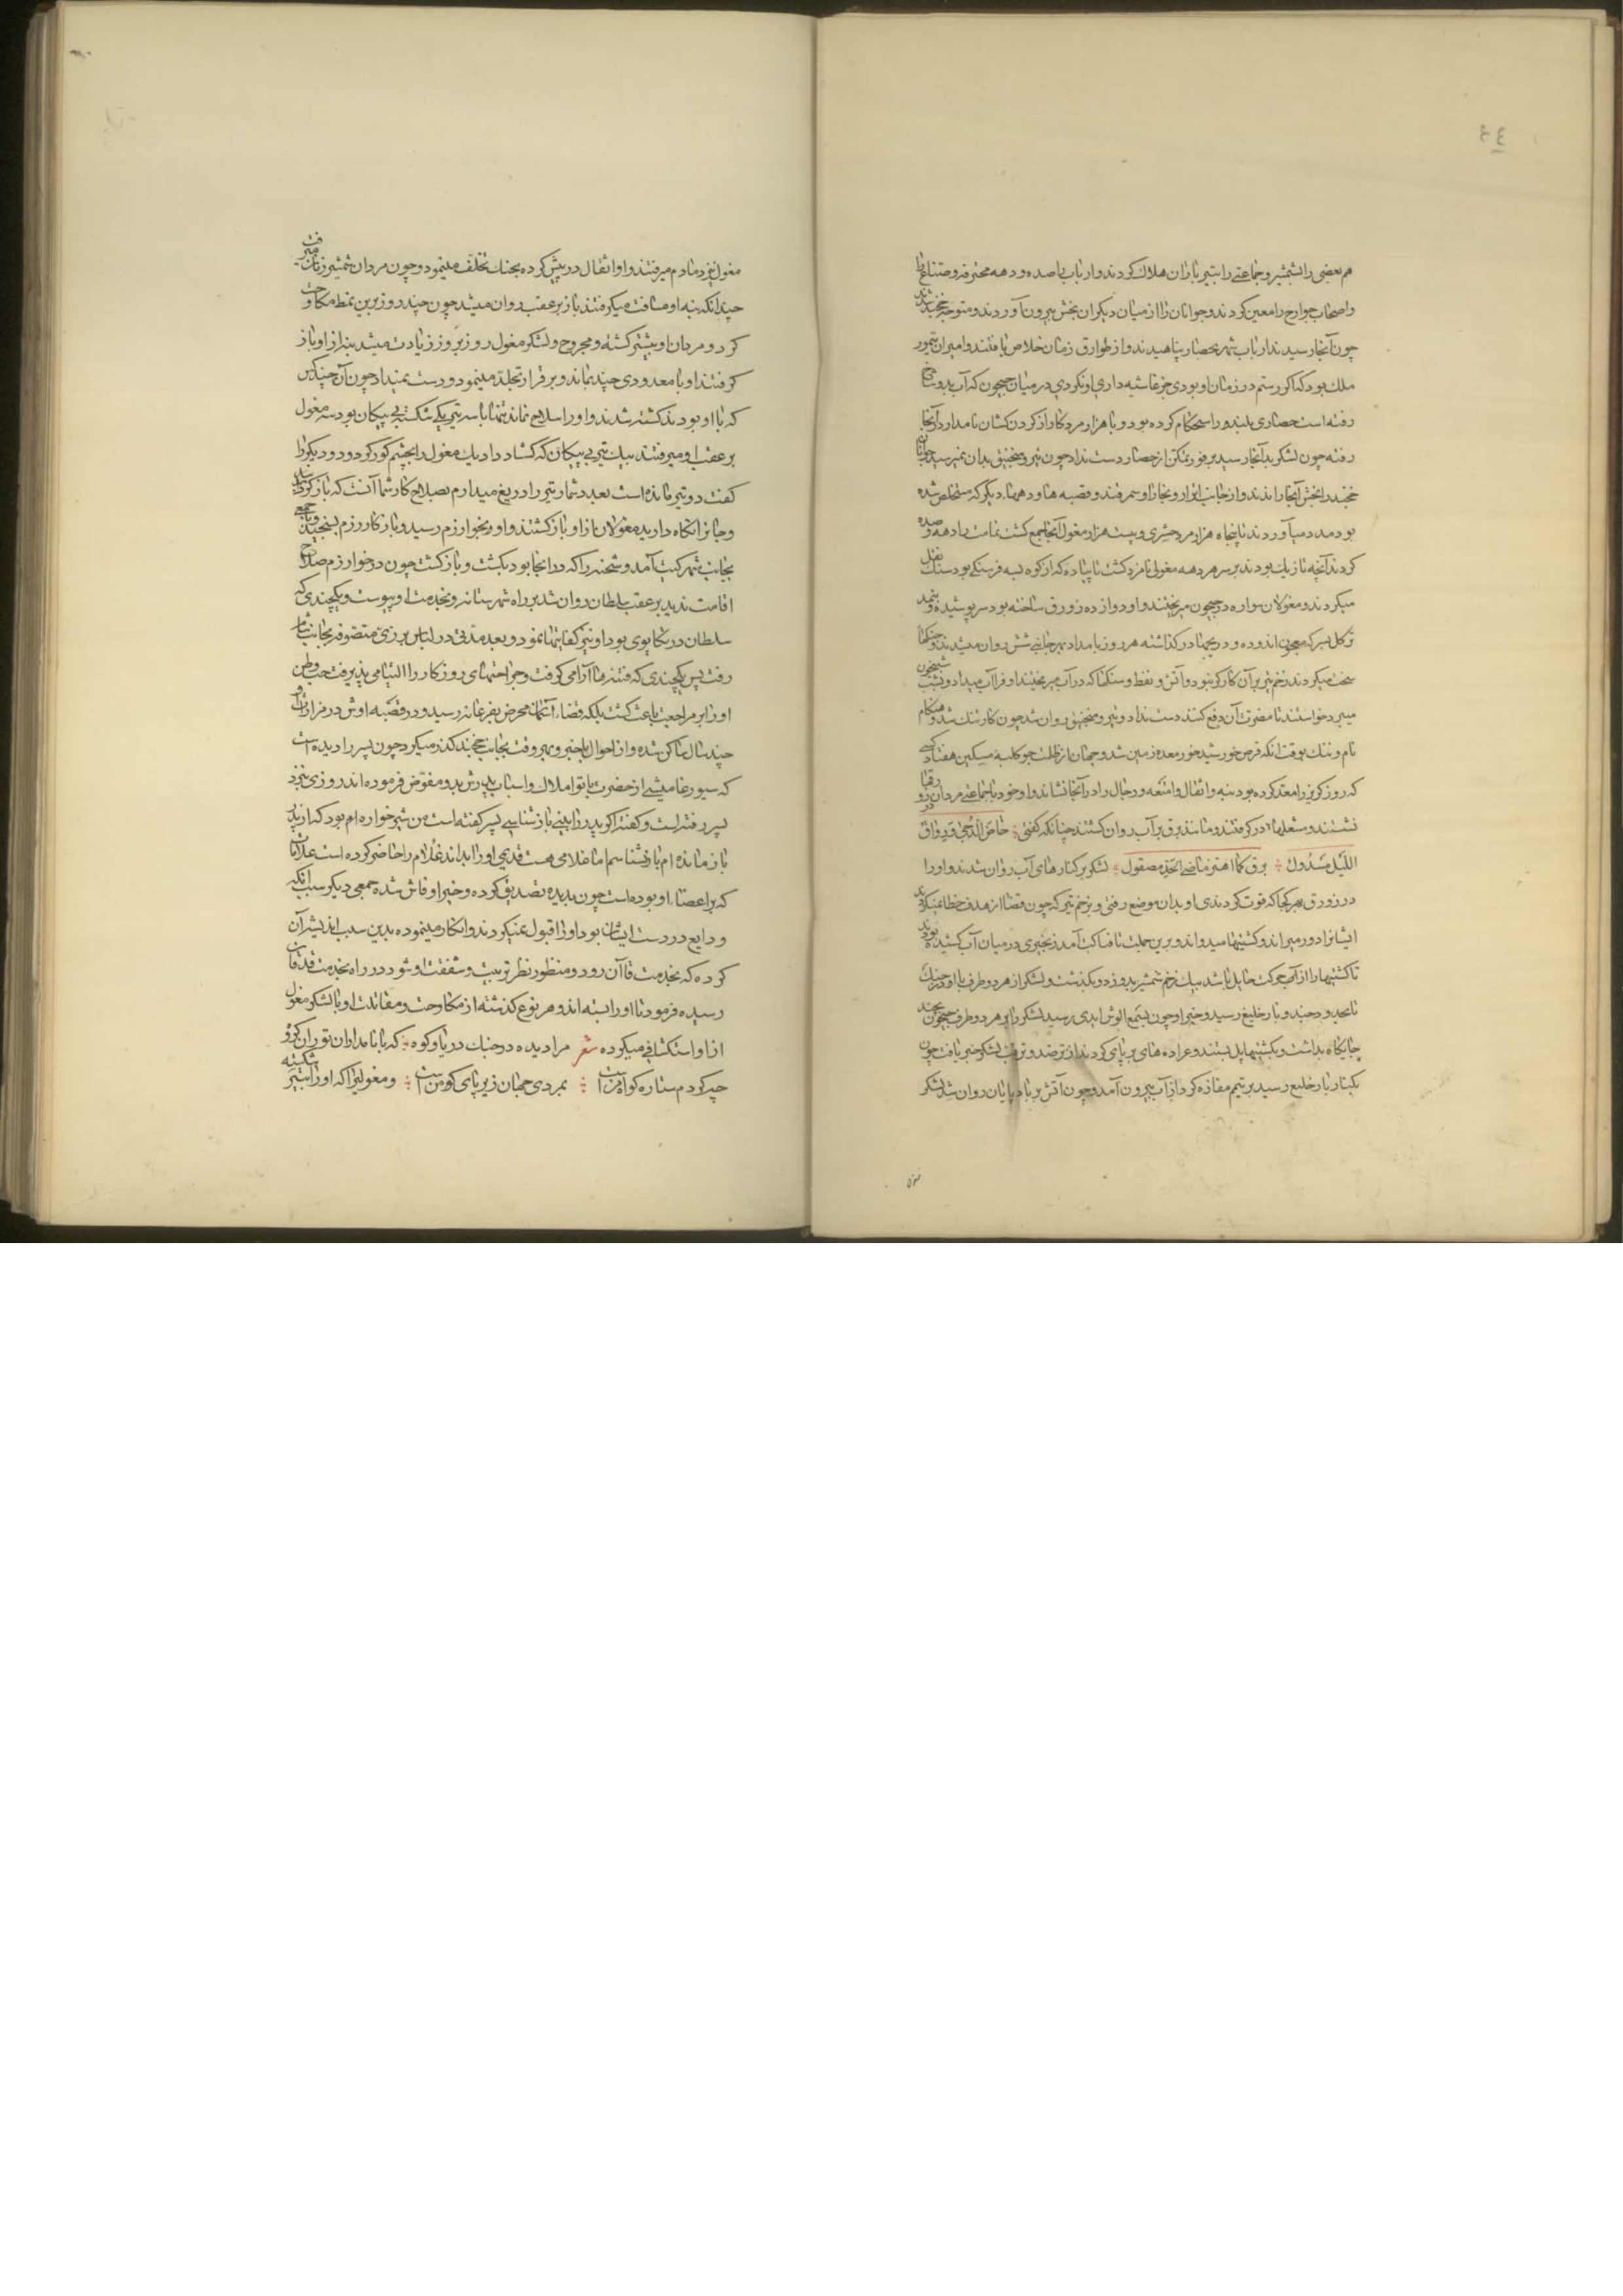 ٤٤
هم بعضی را بشمشیر و جماعتی را بتیر باران هلاک کردند و ارباب با صده و دهه محترفه و صناع را
و اصحاب جوارح را معین کردند و جوانان را از میان دیگران بخش بیرون آوردند و متوجه خجند شدند
چون آنجا رسیدند ارباب شهر بحصار پناهیدند و از طوارق زمان خلاص یافتند و امیر آن تیمور
ملک بود که اگر رستم در زمان او بودی جز غاشیه داری او نکردی در میان جیحون که آب بدو شاخ
رفته است حصاری بلند و را استحکام کرده بود و با هزار مرد کارزار از گردن کشان نامدار در آنجا
رفته چون لشکر بدانجا رسید بر فور تمکن از حصار دست نداد چون تیر و منجنیق بدان نمیرسید جوانان
خجند را بخش آنجا راندند و از جانب اترار و بخارا و سمرقند و قصبه ها و دهها دیگر که مستخلص شده
بود مدد میآوردند تا پنجاه هزار مرد حشری و بیست هزار مغول آنجا جمع گشت تمامت را دهه و صده
کردند آنچه تازیک بودند بر سر هر دهه مغولی نامزد گشت تا پیاده که از کوه بسه فرسنگی بود سنگ نقل
میکردند و مغولان سواره در جیحون میریختند و او دوازده زورق ساخته بود سر پوشیده و بنمد
تر گل بسرکه معجون اندوده و دریچها در گذاشته هر روز بامداد بهر جانبی شش روان میشدند و جنگها
سخت میکردند زخم تیر بر آن کارگر نبود و آتش و نفط و سنگها که در آب میریختند او فرا آب میداد و بشب شبیخون
میبرد خواستند تا مضرت آن دفع کنند دست نداد و تیر و منجنیق روان شد چون کار تنگ شد و هنگام
نام و ننگ بوقت آنکه قرص خورشید خور معده زمین شد و جهان از ظلمت چو کلبه مسکین هفتاد کشتی
که روز گریز را معد کرده بود بنه و اثقال و امتعه و رجال را در آنجا نشاند و او خود با جماعتی مردان در زورقها
نشستند و مشعلها در گرفتند و مانند برق بر آب روان گشتند چنانکه گفتی خاض الدجی و رواق
اللیل مسدول برق کما اهتز ماضی الحد مصقول لشکر بر کنارهای آب روان شدند و او را
در زورق بهر کجا که قوت کردندی او بدان موضع رفتی و بزخم تیر که چون قضا از هدف خطا نمیکرد
ایشانرا دور میراند و کشتیها میدواند و برین جملت تا فناکت آمد زنجیری در میان آب کشیده بودند
تا کشتیها را از آنجا حایل باشد بیک زخم شمشیر بدو زد و بگذشت و لشکر از هر دو طرف با او در جنگ
تا بحدود جند و بارخلیغ رسید و خبر او چون بسمع الوش ایدی رسید لشکر را بر هر دو طرف جیحون بچند
جایگاه بداشت و بکشتیها پل بستند و عراده های بر پای کردند از ترصد و ترقب لشکر خبر یافت چون
بکنار بارخلیغ رسید بر تیمم مفازه کرد از آب بیرون آمد و چون آتش بر باد پایان روان شد لشکر
مغول
مغول نیز دمادم میرفتند و او اثقال در پیش کرده بجنگ تخلف مینمود و چون مردان شمشیر زنان میرفت
چندانکه بنه او مسافت میگرفتند باز بر عقب روان میشد چون چند روز برین نمط مکاوحت
کرد و مردان او بیشتر کشته و مجروح و لشکر مغول روز بروز زیادت میشد بنه از او باز
گرفتند او با معدودی چند بماند و بر قرار تجلد مینمود و دست نمیداد چون آن چند کس
که با او بودند کشته شدند و او را سلاح نماند تنها با سه تیر یکی شکسته بی پیکان بود سه مغول
بر عقب او میرفتند بیک تیر بی پیکان که گشاد داد یک مغول را بچشم کور کرد و دو دیگر را
گفت دو تیر مانده است بعدد شما تیر را دریغ میدارم بصلاح کار شما آنست که باز گردید
و جان را نگاه دارید مغولان از او باز گشتند و او بخوارزم رسید و باز کار رزم بسیجید و با جمعی
بجانب شهر کنت آمد و شحنه را که در آنجا بود بکشت و باز گشت چون در خوارزم صلاح
اقامت ندید بر عقب سلطان روان شد بر راه شهرستانه و بخدمت او پیوست و یکچندی که
سلطان در تکاپوی بود او نیز کفایتها نمود و بعد مدتی در لباس و زی متصوفه بجانب شام
رفت پس یکچندی که فتنها آرامی گرفت و جراحتهای روزگار را التیامی پذیرفت حب وطن
او را بر مراجعت باعث گشت بلکه قضاء آسمان محرض بفرغانه رسید و در قصبه اوش در مزارات
چند سال ساکن شده و از احوال باخبر و بهر وقت بجانب خجند گذر میکرد چون پسر را دیده است
که سیورغامیشی از حضرت باتو املاک و اسباب پدرش بدو مفوض فرموده اند روزی نزد
پسر رفته است و گفته اگر پدر را بینی باز شناسی پسر گفته است من شیرخواره ام بود که از پدر
باز مانده ام باز نشناسم اما غلامی هست قدیمی او را بداند غلام را حاضر کرده است علامات
که بر اعضاء او بوده است چون بدیده تصدیق کرده و خبر او فاش شده جمعی دیگر سبب آنکه
ودایع در دست ایشان بود او را قبول نمیکردند و انکار مینموده بدین سبب اندیشه آن
کرده که بخدمت قاآن رود و منظور نظر تربیت و شفقت او شود در راه بخدمت قدقان
رسیده فرمود تا او را بسته اند و هر نوع گذشته از مکاوحت و مقاتلت او با لشکر مغول
از او استکشافی میکرده شعر مرا دیده در جنگ دریا و کوه که با نامداران توران گروه
چه کردم ستاره گوای منست بمردی جهان زیر پای منست و مغولی را که او را بتیر شکسته